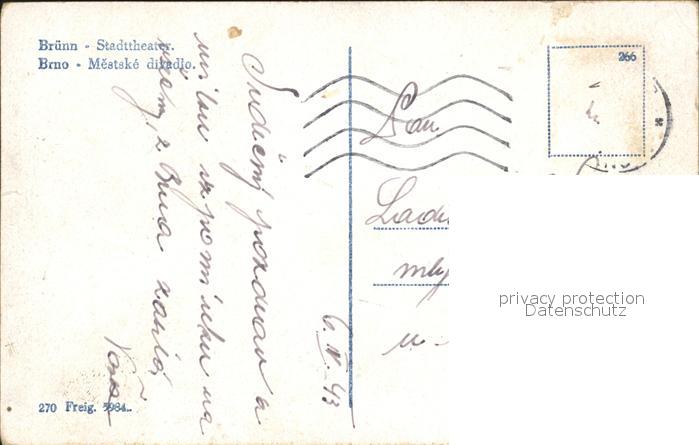 Brünn - Stadttheater.
Brno - Městské divadlo.
Srdečný pozdrav a
milou vzpomínku na
všem, z Brna zasílá
6. IV. 43
266
Pan
Ladi
mly
privacy protection
Datenschutz
270 Freig. 3984..